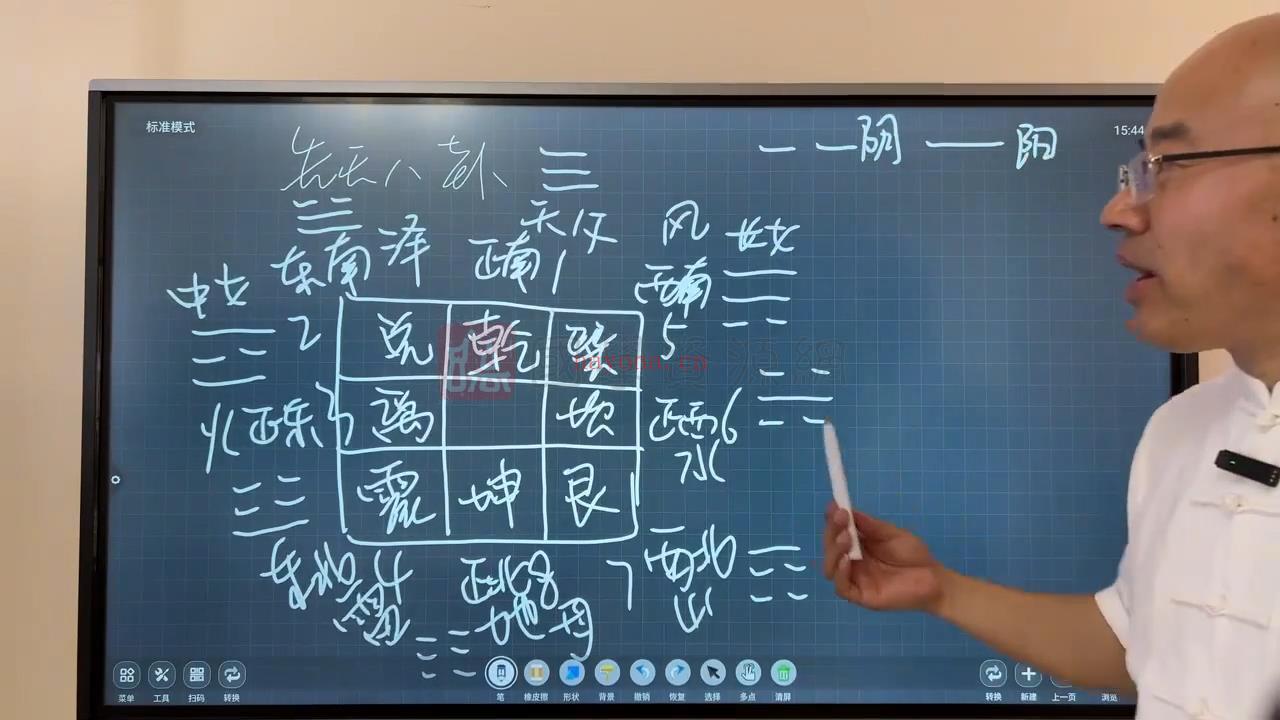 标准模式
15:44
先天八卦
阴 阳
天父
风 长女
东南 泽
正南 1
西南
中女
2
兑 乾 巽
5
火 正东 3
离 坎
正西 6
水
震 坤 艮
东北 4
雷
正北 8
地 母
7 西北
山
菜单 工具 扫码 转换
笔 橡皮擦 形状 背景 撤销 恢复 选择 多点 清屏
转换 新建 上一页 浏览